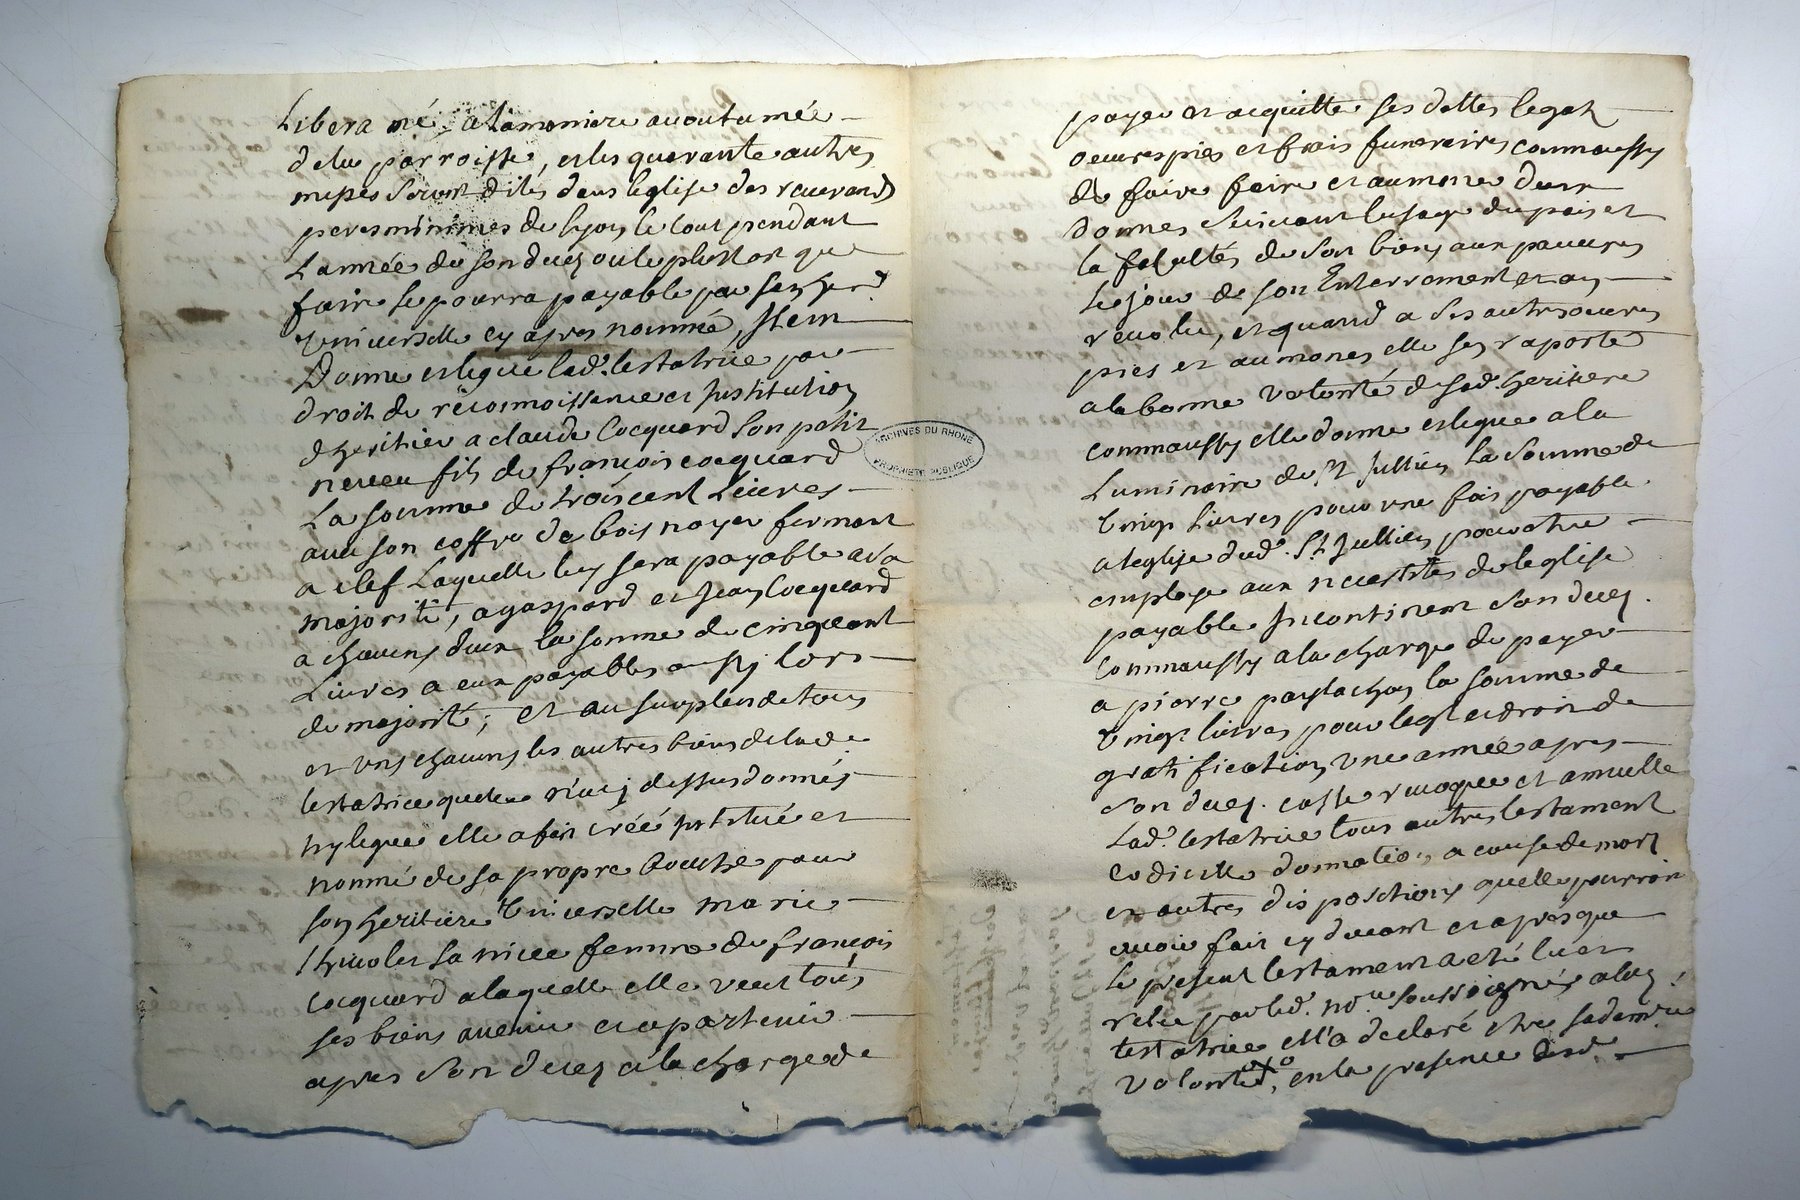 Libera mé, a lamoniere acoutumée
delad parroisse, et les quarante autres
messes seront dités dans leglise des reuerands
peres minimes de lyon, le tout pendant
Lannée de son decez ou le plustost que
faire se pourra payable par sa her.
vniuerselle cy apres nommée, Item
Donne et legue lad. testatrice par
droit de réconnoissance et Institution
dheritier a claude Cocquard son petit
neveu fils de françois cocquard
La somme de trois cent Liures
auec son coffre de bois noyer fermant
a clef Laquelle luy sera payable a sa
majorité, a gaspard et Jean Cocquard
a chacuns deux la somme de cinquant
Liures a eux payables aussy lors
de majorité; et au surplus de tous
et vns chacuns les autres biens de lad.
testatrice quelle n'a cy dessus donnés
ny legué elle a fait créé Institué et
nommé de sa propre bouche pour
son heritiere vniuerselle marie
Thiuolet sa niece femme de françois
Cocquard a laquelle elle veut tous
ses biens auenir et apartenir
apres son decez a la charge de
payer et acquitte ses dettes legats
oeuures pies et frais funeraires commaussy
de faire faire et aumone deux
donnes suiuant lusage du pais et
la faculté de son biens aux pauures
le jour de son Enterrement et an
reuolu, et quand a ses autres oeuures
pies et aumones elle sen raporte
a la bonne volonté de sad. heritiere
commaussy elle donne et legue a la
Luminaire de St Jullien La somme de
vingt Liures pour vne fois payable
a leglise dud. St Jullien pour etre
employe aux necessités de leglise
payable Incontinent son decez.
commaussy a la charge de payer
a pierre paystachon la somme de
vingt liures pour legt et droit de
gratification vne année apres
son decez. casse reuoque et annulle
Lad. testatrice tous autres testament
codicille donnation a cause de mort
et autres dispositions quelle pourroit
auoir fait cy deuant et apres que
le present testament a eté lu et
relu par led. no.re soussigné a lad.
testatrice ell'a declaré etre sa derniere
volonté, en la presence desd.
ARCHIVES DU RHONE
PROPRIETE PUBLIQUE